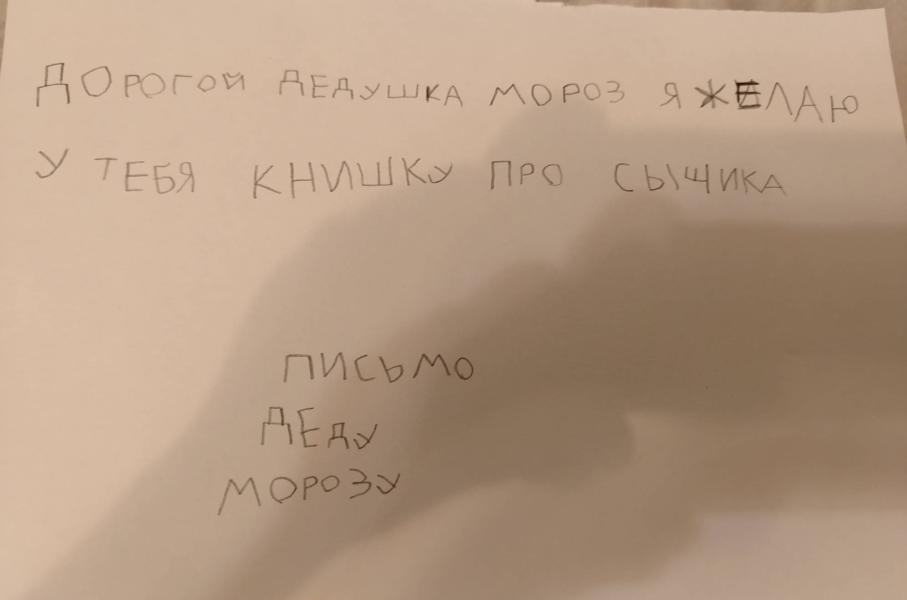 ДОРОГОЙ ДЕДУШКА МОРОЗ Я ЖЕЛАЮ
У ТЕБЯ КНИШКУ ПРО СЫЧИКА
ПИСЬМО
ДЕДУ
МОРОЗУ